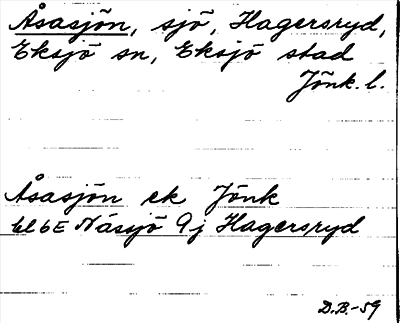 Åsasjön, sjö, Hagersryd,
Eksjö sn, Eksjö stad
Jönk. l.
Åsasjön ek Jönk
bl 6E Nässjö 9j Hagersryd
D.B.-59